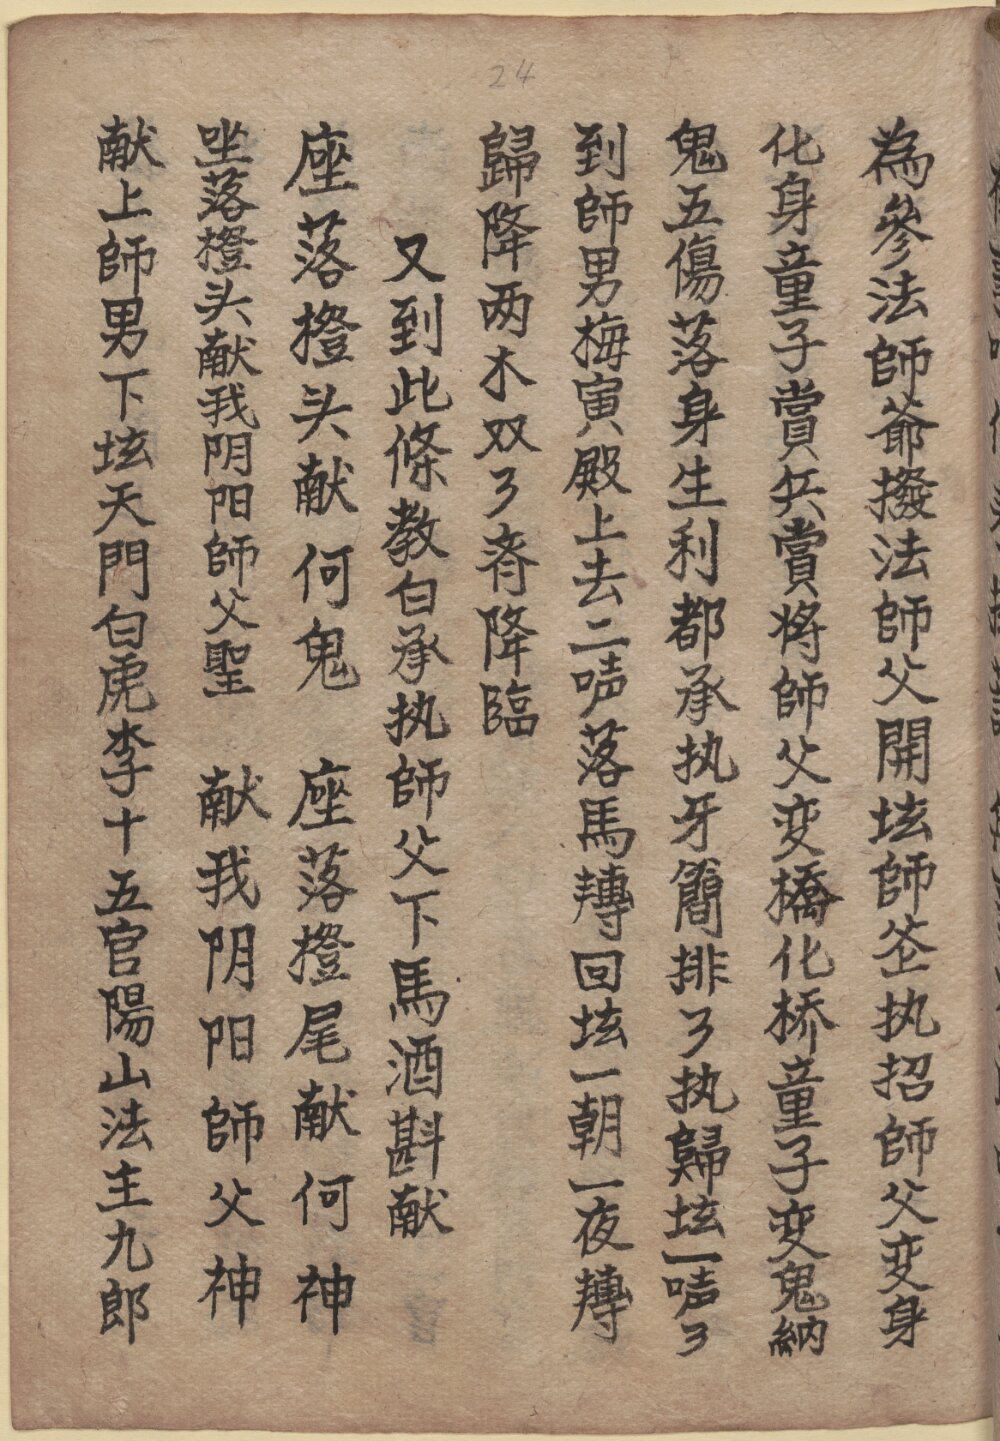 24
為參法師爺撥法師父開坛師峦执招師父变身
化身童子賞兵賞将師父变橋化桥童子变鬼納
鬼五傷落身生利都承执牙簡排了执歸坛一唠了
到師男梅寅殿上去二唠落馬轉回坛一朝一夜轉
歸降两木双了齐降臨
又到此條教白承执師父下馬酒斟献
座落橙头献何鬼　座落橙尾献何神
坐落橙头献我阴阳師父聖　献我阴阳師父神
献上師男下坛天門白虎李十五官陽山法主九郎